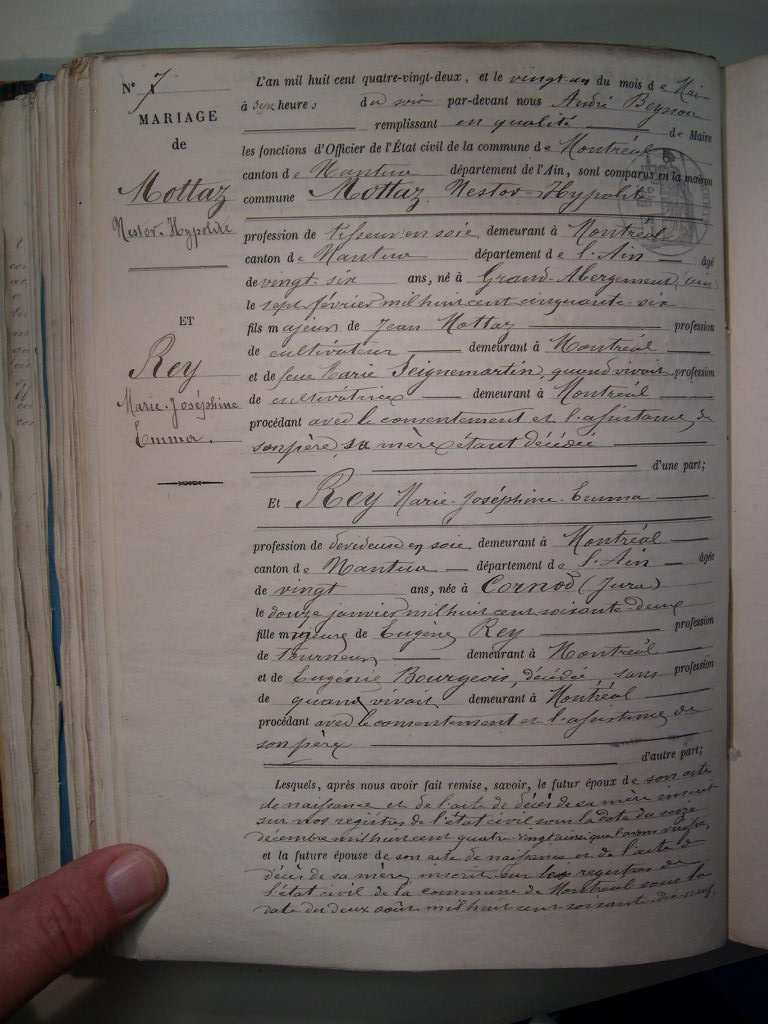 N° 7
MARIAGE
de
Mottaz
Nestor-Hypolite
ET
Rey
Marie-Joséphine
Emma.
L'an mil huit cent quatre-vingt-deux, et le vingt du mois de Mai
à six heures du soir par-devant nous André Beynon
remplissant en qualité de Maire
les fonctions d'Officier de l'État civil de la commune de Montréal
canton de Nantua département de l'Ain, sont comparus en la maison
commune Mottaz Nestor-Hypolite
profession de tisseur en soie demeurant à Montréal
canton de Nantua département de l'Ain âgé
de vingt-six ans, né à Grand-Abergement (Ain)
le sept février mil huit cent cinquante-six
fils majeur de Jean Mottaz profession
de cultivateur demeurant à Montréal
et de feue Marie Seignemartin, quand vivait profession
de cultivatrice demeurant à Montréal
procédant avec le consentement et l'assistance de
son père, sa mère étant décédée
d'une part;
Et Rey Marie-Joséphine-Emma
profession de dévideuse en soie demeurant à Montréal
canton de Nantua département de l'Ain âgée
de vingt ans, née à Cornod (Jura)
le douze janvier mil huit cent soixante-deux
fille mineure de Eugène Rey profession
de tourneur demeurant à Montréal
et de Eugénie Bourgeois, décédée, sans profession
de quand vivait demeurant à Montréal
procédant avec le consentement et l'assistance de
son père
d'autre part;
Lesquels, après nous avoir fait remise, savoir, le futur époux de son acte
de naissance et de l'acte de décès de sa mère inscrit
sur nos registres de l'état civil sous la date du seize
décembre mil huit cent quatre-vingt ainsi que l'avons vérifié,
et la future épouse de son acte de naissance et de l'acte de
décès de sa mère inscrit sur les registres de
l'état civil de la commune de Montréal sous la
date du deux août mil huit cent soixante-dix-neuf